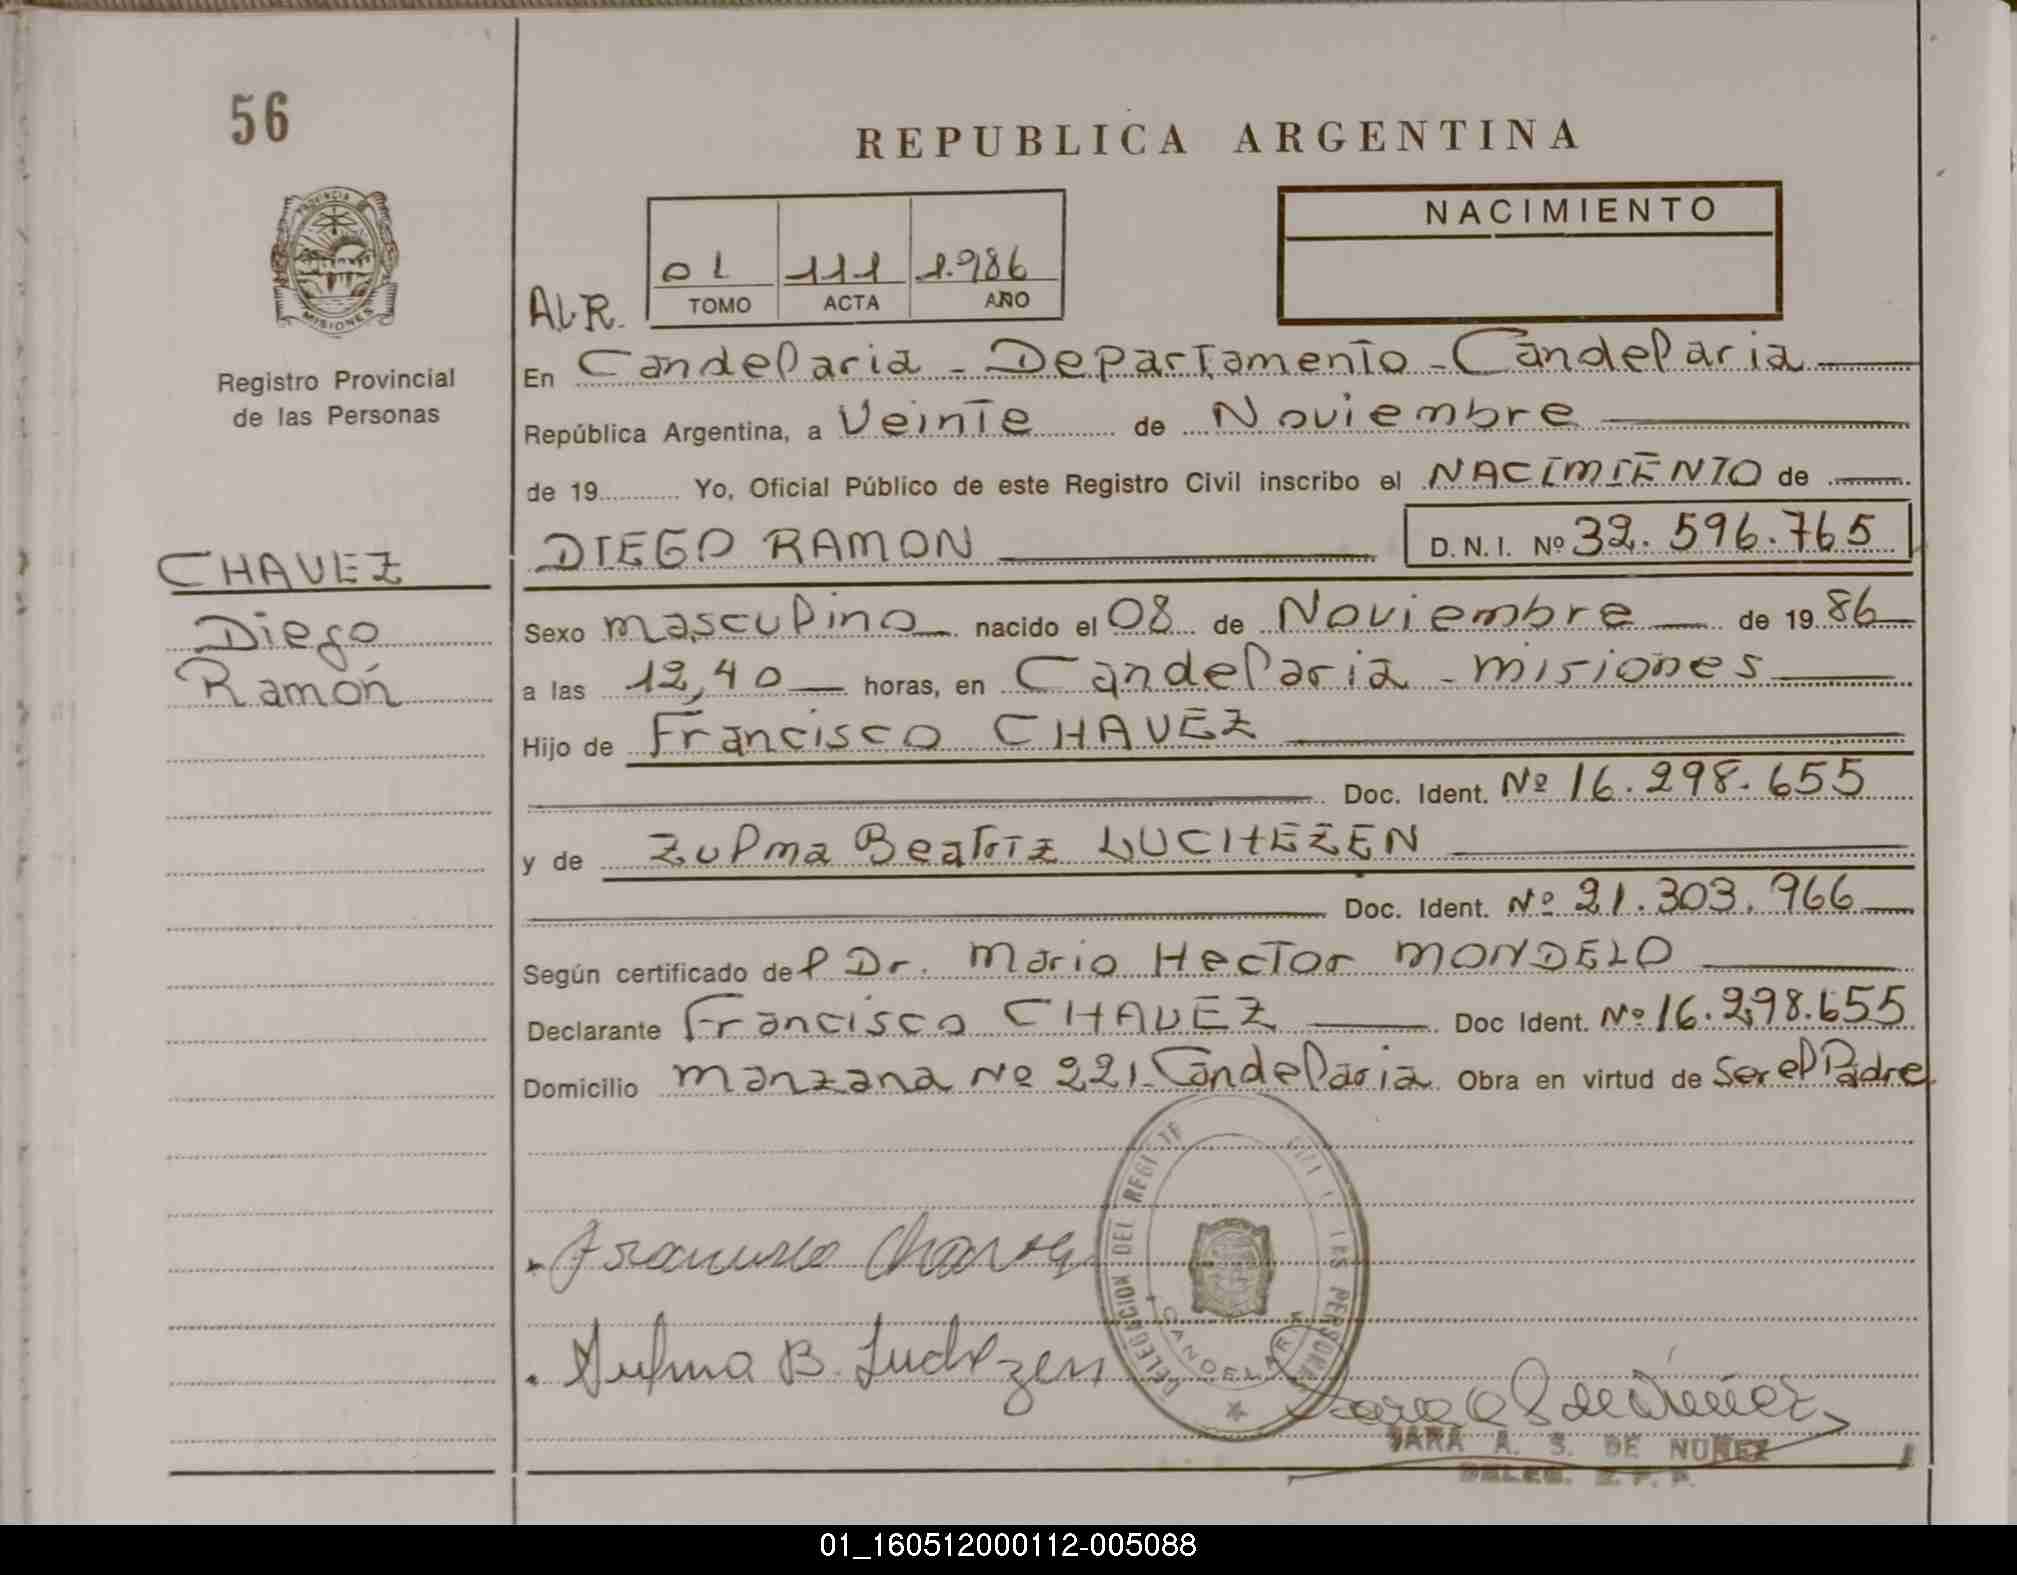 56
REPUBLICA ARGENTINA
PROVINCIA DE
MISIONES
Registro Provincial
de las Personas
01 111 1.986
TOMO ACTA AÑO
NACIMIENTO
ALR.
En Candelaria - Departamento - Candelaria
República Argentina, a Veinte de Noviembre
de 19 Yo, Oficial Público de este Registro Civil inscribo el NACIMIENTO de
CHAVEZ
Diego
Ramón
DIEGO RAMON D.N.I. Nº 32.596.765
Sexo masculino nacido el 08 de Noviembre de 1986
a las 12,40 horas, en Candelaria - misiones
Hijo de Francisco CHAVEZ
Doc. Ident. Nº 16.298.655
y de Zulma Beatriz LUCHEZEN
Doc. Ident. Nº 21.303.966
Según certificado del Dr. Mario Hector MONDELO
Declarante Francisco CHAVEZ Doc Ident. Nº 16.298.655
Domicilio manzana Nº 221. Candelaria Obra en virtud de Ser el Padre
Francisco Chavez
Zulma B. Luchezen
DELEGACION DEL PERSONAS
CANDELARIA
SARA A. S. DE NUÑEZ
DELEG. R. P. P.
01_160512000112-005088